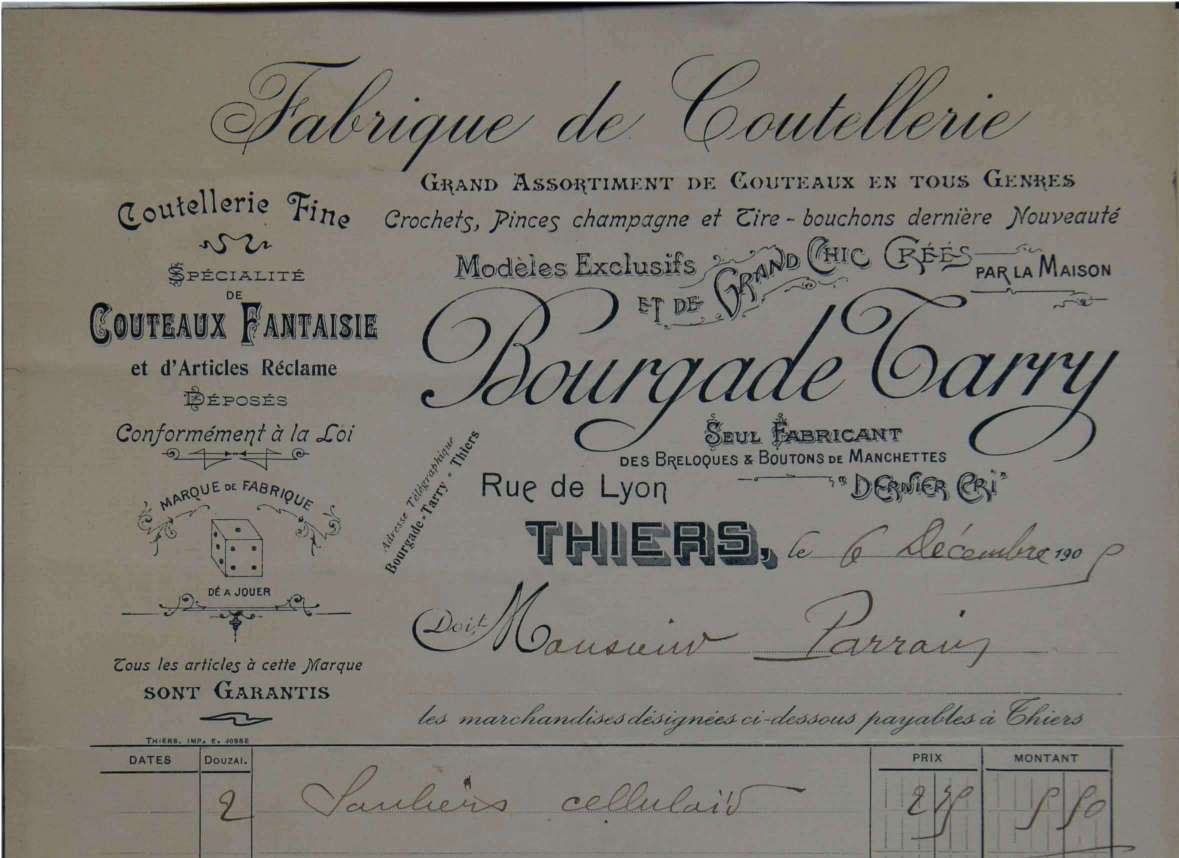 Fabrique de Coutellerie
GRAND ASSORTIMENT DE COUTEAUX EN TOUS GENRES
Crochets, Pinces champagne et Tire-bouchons dernière Nouveauté
Modèles Exclusifs ET DE GRAND CHIC CRÉÉS PAR LA MAISON
Bourgade Tarry
SEUL FABRICANT
DES BRELOQUES & BOUTONS DE MANCHETTES
"DERNIER CRI"
Rue de Lyon
Adresse Télégraphique
Bourgade-Tarry-Thiers
THIERS, le 6 Décembre 1905
Coutellerie Fine
SPÉCIALITÉ
DE
COUTEAUX FANTAISIE
et d'Articles Réclame
DÉPOSÉS
Conformément à la Loi
MARQUE DE FABRIQUE
DÉ A JOUER
Tous les articles à cette Marque
SONT GARANTIS
THIERS, IMP. E. JOSSE
Doit Monsieur
les marchandises désignées ci-dessous payables à Thiers
DATES DOUZAI. PRIX MONTANT
2 cellulaid 2 75 5 50